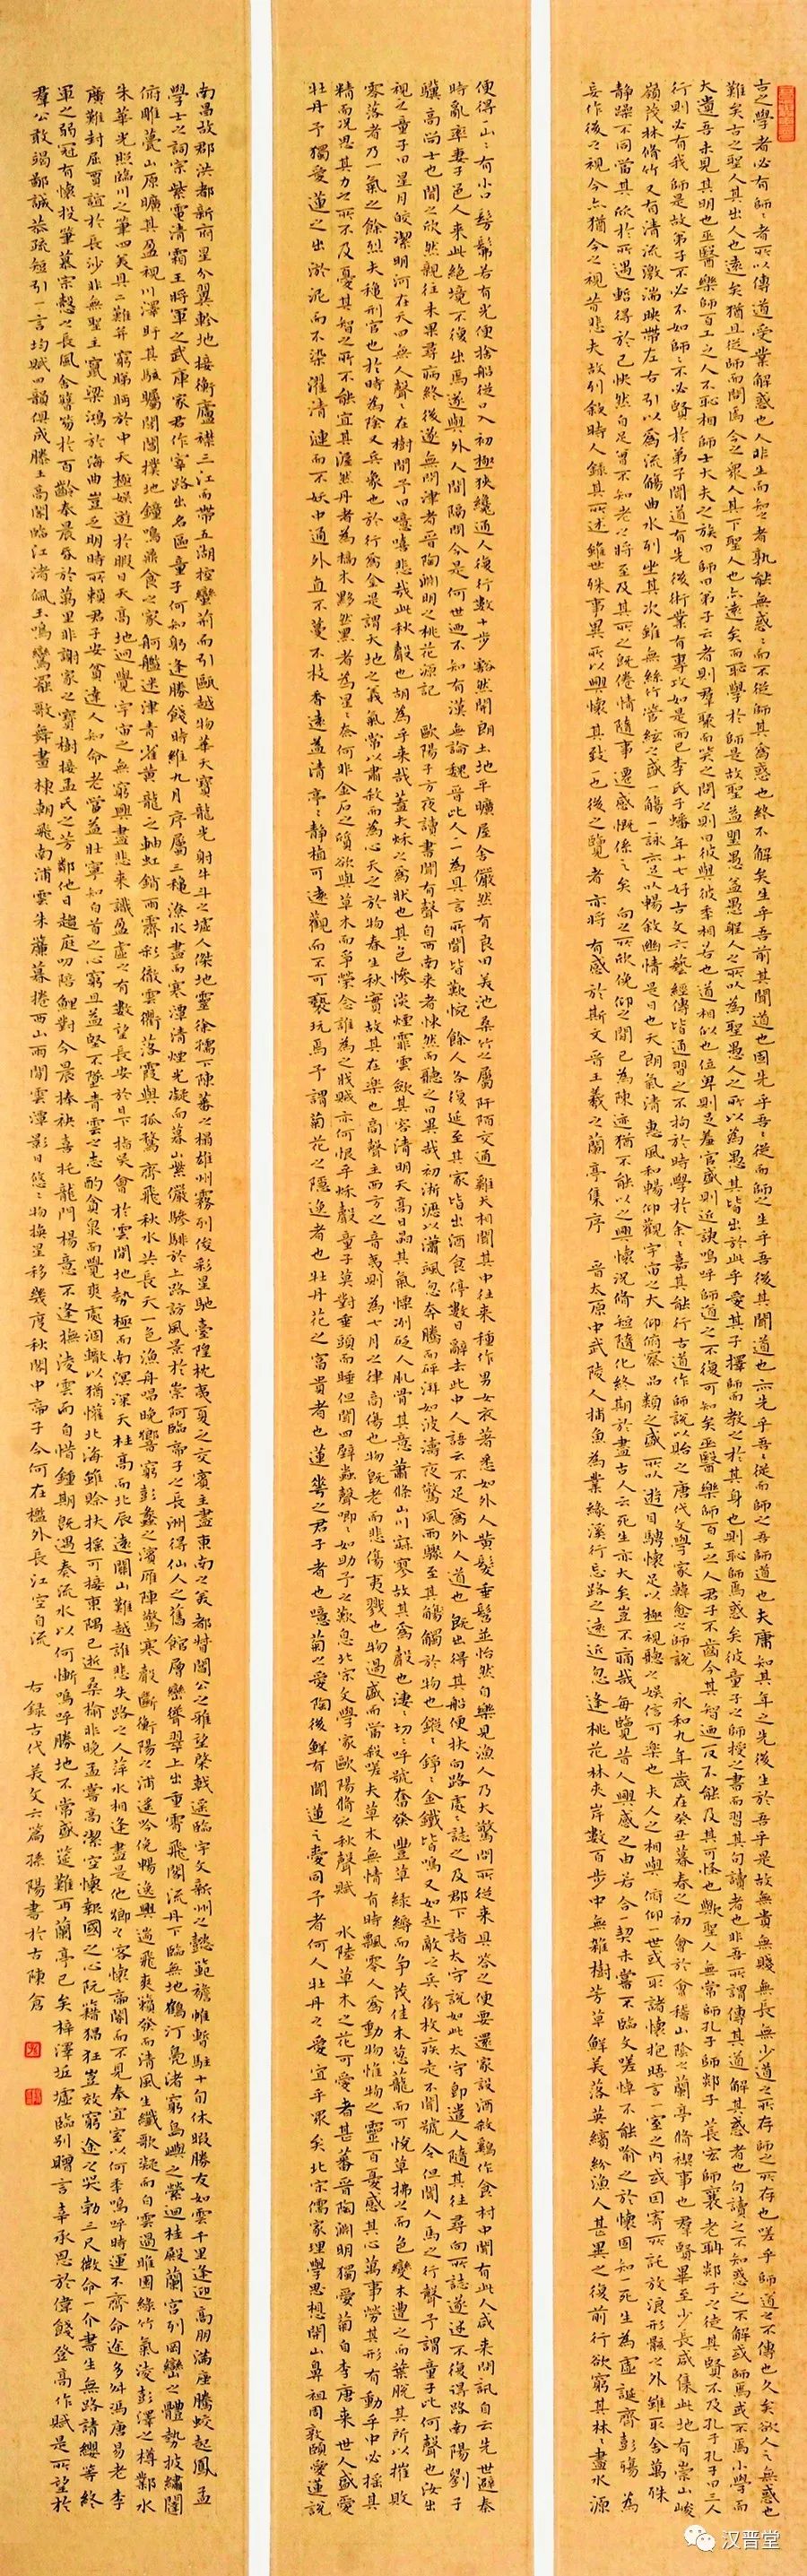 古之學者必有師々者所以傳道受業解惑也人非生而知之者孰能無惑々而不從師其為惑也終不解矣生乎吾前其聞道也固先乎吾々從而師之生乎吾後其聞道也亦先乎吾々從而師之吾師道也夫庸知其年之先後生於吾乎是故無貴無賤無長無少道之所存師之所存也嗟乎師道之不傳也久矣欲人之無惑也
難矣古之聖人其出人也遠矣猶且從師而問焉今之眾人其下聖人也亦遠矣而恥學於師是故聖益聖愚益愚聖人之所以為聖愚人之所以為愚其皆出於此乎愛其子擇師而教之於其身也則恥師焉惑矣彼童子之師授之書而習其句讀者也非吾所謂傳其道解其惑者也句讀之不知惑之不解或師焉或不焉小學而
大遺吾未見其明也巫醫樂師百工之人不恥相師士大夫之族曰師曰弟子云者則群聚而笑之問之則曰彼與彼年相若也道相似也位卑則足羞官盛則近諛嗚呼師道之不復可知矣巫醫樂師百工之人君子不齒今其智迺反不能及其可怪也歟聖人無常師孔子師郯子萇宏師襄老聃郯子之徒其賢不及孔子孔子曰三人
行則必有我師是故弟子不必不如師々不必賢於弟子聞道有先後術業有專攻如是而已李氏子蟠年十七好古文六藝經傳皆通習之不拘於時學於余々嘉其能行古道作師說以貽之唐代文學家韓愈之師說 永和九年歲在癸丑暮春之初會於會稽山陰之蘭亭脩禊事也群賢畢至少長咸集此地有崇山峻
嶺茂林脩竹又有清流激湍映帶左右引以為流觴曲水列坐其次雖無絲竹管絃之盛一觴一詠亦足以暢敘幽情是日也天朗氣清惠風和暢仰觀宇宙之大俯察品類之盛所以遊目騁懷足以極視聽之娛信可樂也夫人之相與俯仰一世或取諸懷抱晤言一室之內或因寄所託放浪形骸之外雖取舍萬殊
靜躁不同當其欣於所遇暫得於己快然自足曾不知老之將至及其所之既倦情隨事遷感慨係之矣向之所欣俛仰之間已為陳迹猶不能以之興懷況脩短隨化終期於盡古人云死生亦大矣豈不痛哉每覽昔人興感之由若合一契未嘗不臨文嗟悼不能喻之於懷固知一死生為虛誕齊彭殤為
妄作後之視今亦猶今之視昔悲夫故列敘時人錄其所述雖世殊事異所以興懷其致一也後之覽者亦將有感於斯文晉王羲之蘭亭集序 晉太原中武陵人捕魚為業緣溪行忘路之遠近忽逢桃花林夾岸數百步中無雜樹芳草鮮美落英繽紛漁人甚異之復前行欲窮其林々盡水源
便得一山々有小口髣髴若有光便捨船從口入初極狹纔通人復行數十步豁然開朗土地平曠屋舍儼然有良田美池桑竹之屬阡陌交通雞犬相聞其中往來種作男女衣著悉如外人黃髮垂髫並怡然自樂見漁人乃大驚問所從來具答之便要還家設酒殺雞作食村中聞有此人咸來問訊自云先世避秦
時亂率妻子邑人來此絕境不復出焉遂與外人間隔問今是何世迺不知有漢無論魏晉此人一一為具言所聞皆歎惋餘人各復延至其家皆出酒食停數日辭去此中人語云不足為外人道也既出得其船便扶向路處々誌之及郡下詣太守說如此太守即遣人隨其往尋向所誌遂迷不復得路南陽劉子
驥高尚士也聞之欣然親往未果尋病終後遂無問津者晉陶淵明之桃花源記 歐陽子方夜讀書聞有聲自西南來者悚然而聽之曰異哉初淅瀝以瀟颯忽奔騰而砰湃如波濤夜驚風雨驟至其觸於物也鏦々錚々金鐵皆鳴又如赴敵之兵銜枚疾走不聞號令但聞人馬之行聲予謂童子此何聲也汝出
視之童子曰星月皎潔明河在天四無人聲々在樹間予曰噫嘻悲哉此秋聲也胡為乎來哉蓋夫秋之為狀也其色慘淡煙霏雲斂其容清明天高日晶其氣慄冽砭人肌骨其意蕭條山川寂寥故其為聲也淒々切々呼號奮發豐草綠縟而爭茂佳木蔥蘢而可悅草拂之而色變木遭之而葉脫其所以摧敗
零落者乃一氣之餘烈夫秋刑官也於時為陰又兵象也於行為金是謂天地之義氣常以肅殺而為心天之於物春生秋實故其在樂也商聲主西方之音夷則為七月之律商傷也物既老而悲傷夷戮也物過盛而當殺嗟夫草木無情有時飄零人為動物惟物之靈百憂感其心萬事勞其形有動乎中必搖其
精而況思其力之所不及憂其智之所不能宜其渥然丹者為槁木黟然黑者為星々奈何非金石之質欲與草木而爭榮念誰為之戕賊亦何恨乎秋聲童子莫對垂頭而睡但聞四壁蟲聲唧々如助予之歎息北宋文學家歐陽脩之秋聲賦 水陸草木之花可愛者甚蕃晉陶淵明獨愛菊自李唐來世人盛愛
牡丹予獨愛蓮之出淤泥而不染濯清漣而不妖中通外直不蔓不枝香遠益清亭々靜植可遠觀而不可褻玩焉予謂菊花之隱逸者也牡丹花之富貴者也蓮花之君子者也噫菊之愛陶後鮮有聞蓮之愛同予者何人牡丹之愛宜乎眾矣北宋儒家理學思想開山鼻祖周敦頤愛蓮說
南昌故郡洪都新府星分翼軫地接衡廬襟三江而帶五湖控蠻荊而引甌越物華天寶龍光射牛斗之墟人傑地靈徐孺下陳蕃之榻雄州霧列俊彩星馳臺隍枕夷夏之交賓主盡東南之美都督閻公之雅望棨戟遙臨宇文新州之懿範襜帷暫駐十旬休暇勝友如雲千里逢迎高朋滿座騰蛟起鳳孟
學士之詞宗紫電清霜王將軍之武庫家君作宰路出名區童子何知躬逢勝餞時維九月序屬三秋潦水盡而寒潭清煙光凝而暮山紫儼驂騑於上路訪風景於崇阿臨帝子之長洲得仙人之舊館層巒聳翠上出重霄飛閣流丹下臨無地鶴汀鳧渚窮島嶼之縈迴桂殿蘭宮列岡巒之體勢披繡闥
俯雕甍山原曠其盈視川澤盱其駭矚閭閻撲地鐘鳴鼎食之家舸艦迷津青雀黃龍之舳虹銷雨霽彩徹雲衢落霞與孤鶩齊飛秋水共長天一色漁舟唱晚響窮彭蠡之濱雁陣驚寒聲斷衡陽之浦遙吟俛暢逸興遄飛爽籟發而清風生纖歌凝而白雲遏睢園綠竹氣凌彭澤之樽鄴水
朱華光照臨川之筆四美具二難并窮睇眄於中天極娛遊於暇日天高地迥覺宇宙之無窮興盡悲來識盈虛之有數望長安於日下指吳會於雲間地勢極而南溟深天柱高而北辰遠關山難越誰悲失路之人萍水相逢盡是他鄉之客懷帝閽而不見奉宣室以何年嗚呼時運不齊命途多舛馮唐易老李
廣難封屈賈誼於長沙非無聖主竄梁鴻於海曲豈乏明時所賴君子安貧達人知命老當益壯寧知白首之心窮且益堅不墜青雲之志酌貪泉而覺爽處涸轍以猶懽北海雖賒扶搖可接東隅已逝桑榆非晚孟嘗高潔空懷報國之心阮籍猖狂豈效窮途之哭勃三尺微命一介書生無路請纓等終
軍之弱冠有懷投筆慕宗愨之長風舍簪笏於百齡奉晨昏於萬里非謝家之寶樹接孟氏之芳鄰他日趨庭叨陪鯉對今晨捧袂喜托龍門楊意不逢撫凌雲而自惜鍾期既遇奏流水以何慚嗚呼勝地不常盛筵難再蘭亭已矣梓澤坵墟臨別贈言幸承恩於偉餞登高作賦是所望於
群公敢竭鄙誠恭疏短引一言均賦四韻俱成滕王高閣臨江渚佩玉鳴鸞罷歌舞畫棟朝飛南浦雲朱簾暮捲西山雨閒雲潭影日悠々物換星移幾度秋閣中帝子今何在檻外長江空自流 右錄古代美文六篇孫陽書於古陳倉
汉晋堂